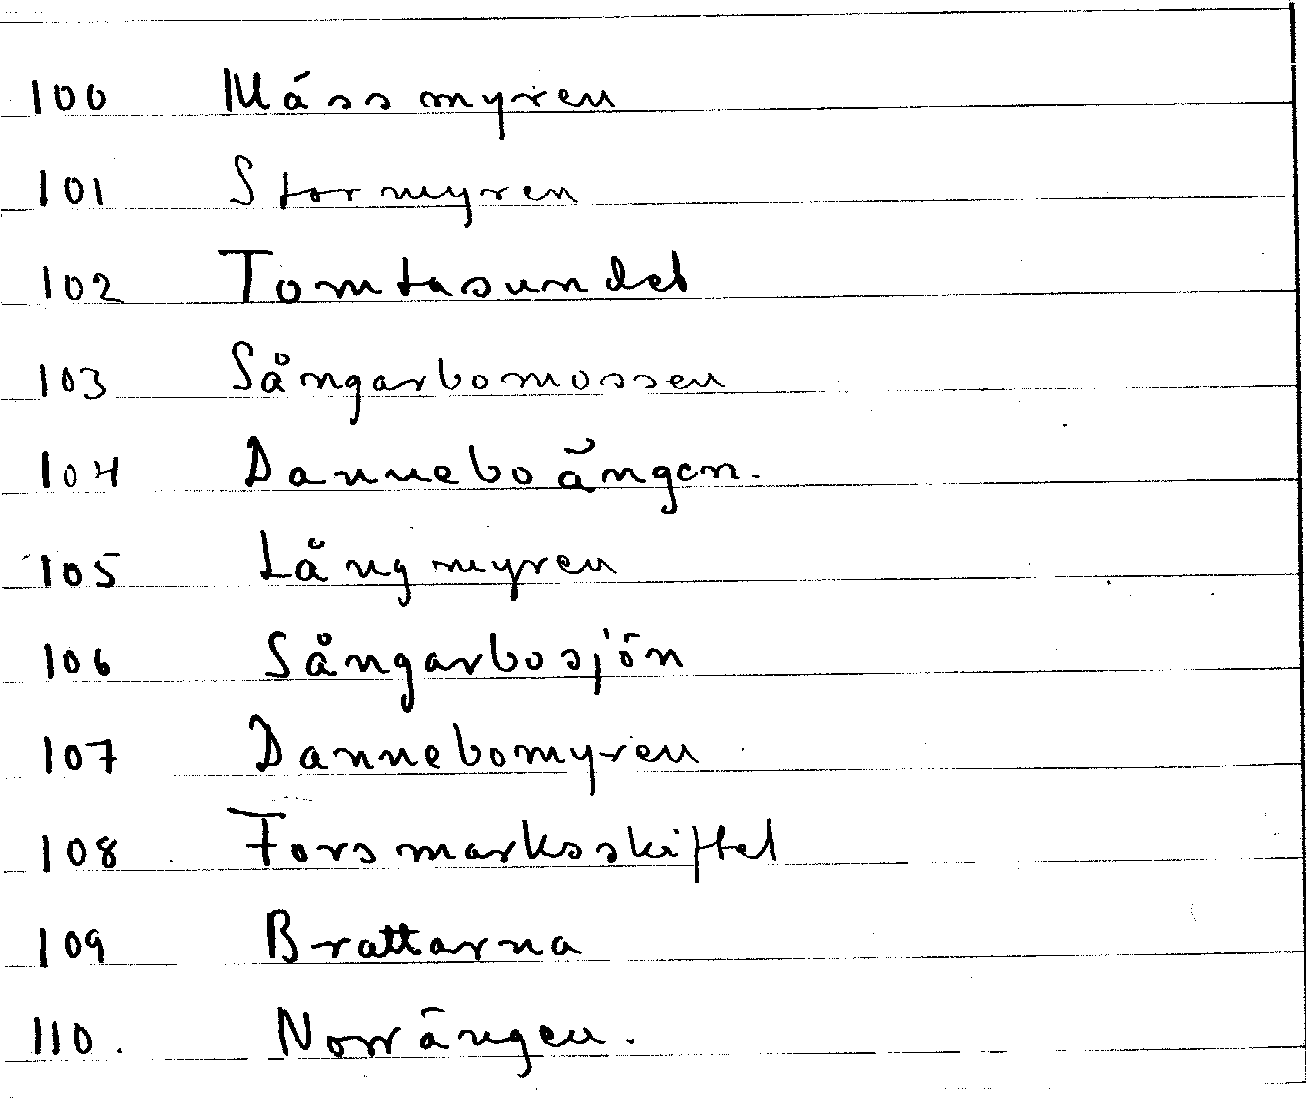 100 Mässmyren
101 Stormyren
102 Tomtasundet
103 Sångarbomossen
104 Danneboängen.
105 Långmyren
106 Sångarbosjön
107 Dannebomyren
108 Forsmarksskiftet
109 Brattarna
110. Norrängen.